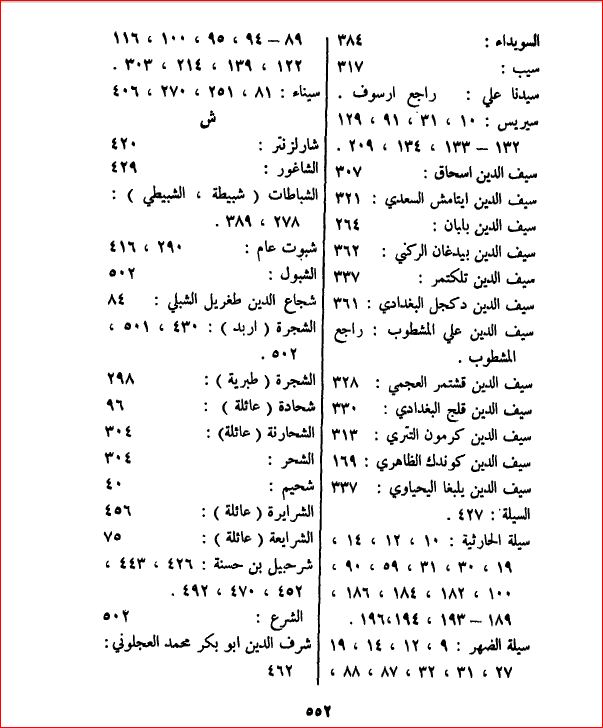 السويداء : ٣٨٤
سيب : ٣١٧
سيدنا علي : راجع ارسوف .
سيريس : ١٠ ، ٣١ ، ٩١ ، ١٢٩
١٣٢ – ١٣٣ ، ١٣٤ ، ٢٠٩ .
سيف الدين اسحاق : ٣٠٧
سيف الدين ايتامش السعدي : ٣٢١
سيف الدين بلبان : ٢٦٤
سيف الدين بيدغان الركني : ٣٦٢
سيف الدين تلكتمر : ٣٣٧
سيف الدين دكجل البغدادي : ٣٦١
سيف الدين علي المشطوب : راجع
المشطوب .
سيف الدين قشتمر العجمي : ٣٢٨
سيف الدين قلج البغدادي : ٣٣٠
سيف الدين كرمون التتري : ٣١٣
سيف الدين كوندك الظاهري : ١٦٩
سيف الدين يلبغا اليحياوي : ٣٣٧
السيلة : ٤٢٧ .
سيلة الحارثية : ١٠ ، ١٢ ، ١٤ ،
١٩ ، ٣٠ ، ٣١ ، ٥٩ ، ٩٠ ،
١٠٠ ، ١٨٢ ، ١٨٤ ، ١٨٦ ،
١٨٩ – ١٩٣ ، ١٩٤ ،١٩٦ .
سيلة الضهر : ٩ ، ١٢ ، ١٤ ، ١٩
٢٧ ، ٣١ ، ٣٢ ، ٨٧ ، ٨٨ ،
٨٩ – ٩٤ ، ٩٥ ، ١٠٠ ، ١١٦
١٢٢ ، ١٣٩ ، ٢١٤ ، ٣٠٣ .
سيناء : ٨١ ، ٢٥١ ، ٢٧٠ ، ٤٠٦
ش
شارلزنتر : ٤٢٠
الشاغور : ٤٢٩
الشباطات ( شبيطة ، الشبيطي ) :
٢٧٨ ، ٣٨٩ .
شبوت عام : ٢٩٠ ، ٤١٦
الشبول : ٥٠٢
شجاع الدين طغريل الشبلي : ٨٤
الشجرة ( اربد ) : ٤٣٠ ، ٥٠١ ،
٥٠٢ .
الشجرة ( طبرية ) : ٢٩٨
شحادة ( عائلة ) : ٩٦
الشحارنة ( عائلة) : ٣٠٤
الشحر : ٣٠٤
شحيم : ٤٠
الشرايرة ( عائلة ) : ٤٥٦
الشرايعة ( عائلة ) : ٧٥
شرحبيل بن حسنة : ٤٢٦ ، ٤٤٣ ،
٤٥٢ ، ٤٧٠ ، ٤٩٢ .
الشرع : ٥٠٢
شرف الدين ابو بكر محمد العجلوني :
٤٦٢
٥٥٢